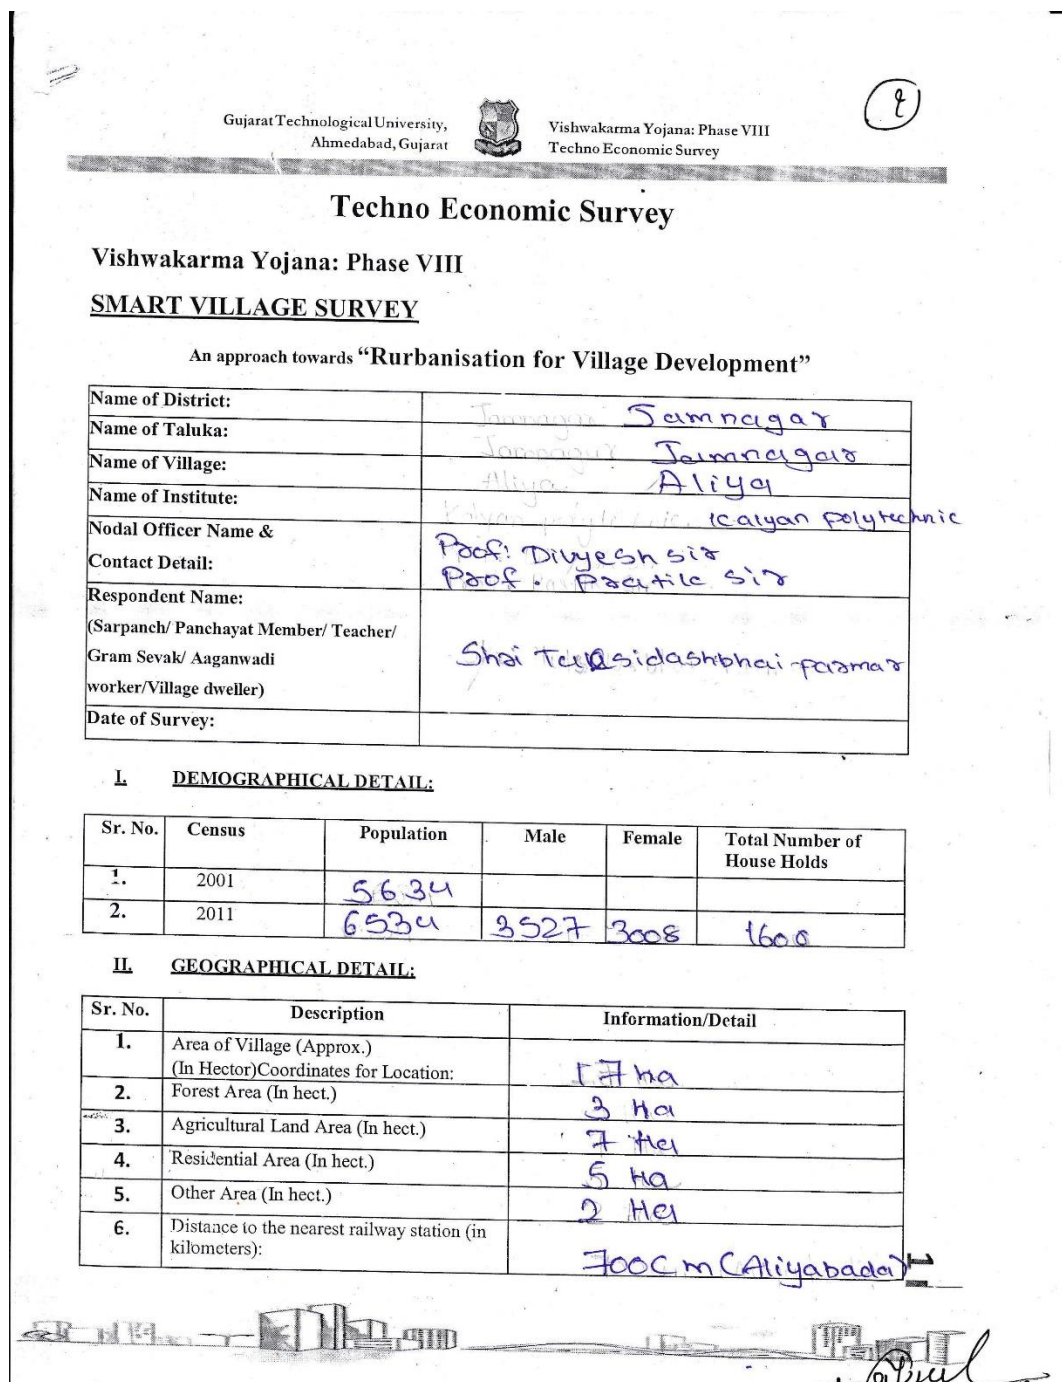 Gujarat Technological University,
Ahmedabad, Gujarat
Vishwakarma Yojana: Phase VIII
Techno Economic Survey
Techno Economic Survey
Vishwakarma Yojana: Phase VIII
SMART VILLAGE SURVEY
An approach towards “Rurbanisation for Village Development”
Name of District: Jamnagar
Name of Taluka: Jamnagar
Name of Village: Aliya
Name of Institute: Kalyan polytechnic
Nodal Officer Name &
Contact Detail:
Prof. Divyesh sir
Prof. Pratik sir
Respondent Name:
(Sarpanch/ Panchayat Member/ Teacher/
Gram Sevak/ Aaganwadi
worker/Village dweller)
Shri parmar
Date of Survey:
I. DEMOGRAPHICAL DETAIL:
Sr. No. Census Population Male Female Total Number of
House Holds
1. 2001 5634
2. 2011 6534 3527 3008 1600
II. GEOGRAPHICAL DETAIL:
Sr. No. Description Information/Detail
1. Area of Village (Approx.)
(In Hector)Coordinates for Location: 17 ha
2. Forest Area (In hect.) 3 Ha
3. Agricultural Land Area (In hect.) 7 Ha
4. Residential Area (In hect.) 5 Ha
5. Other Area (In hect.) 2 Ha
6. Distance to the nearest railway station (in
kilometers): 700 m (Aliyabada)
1